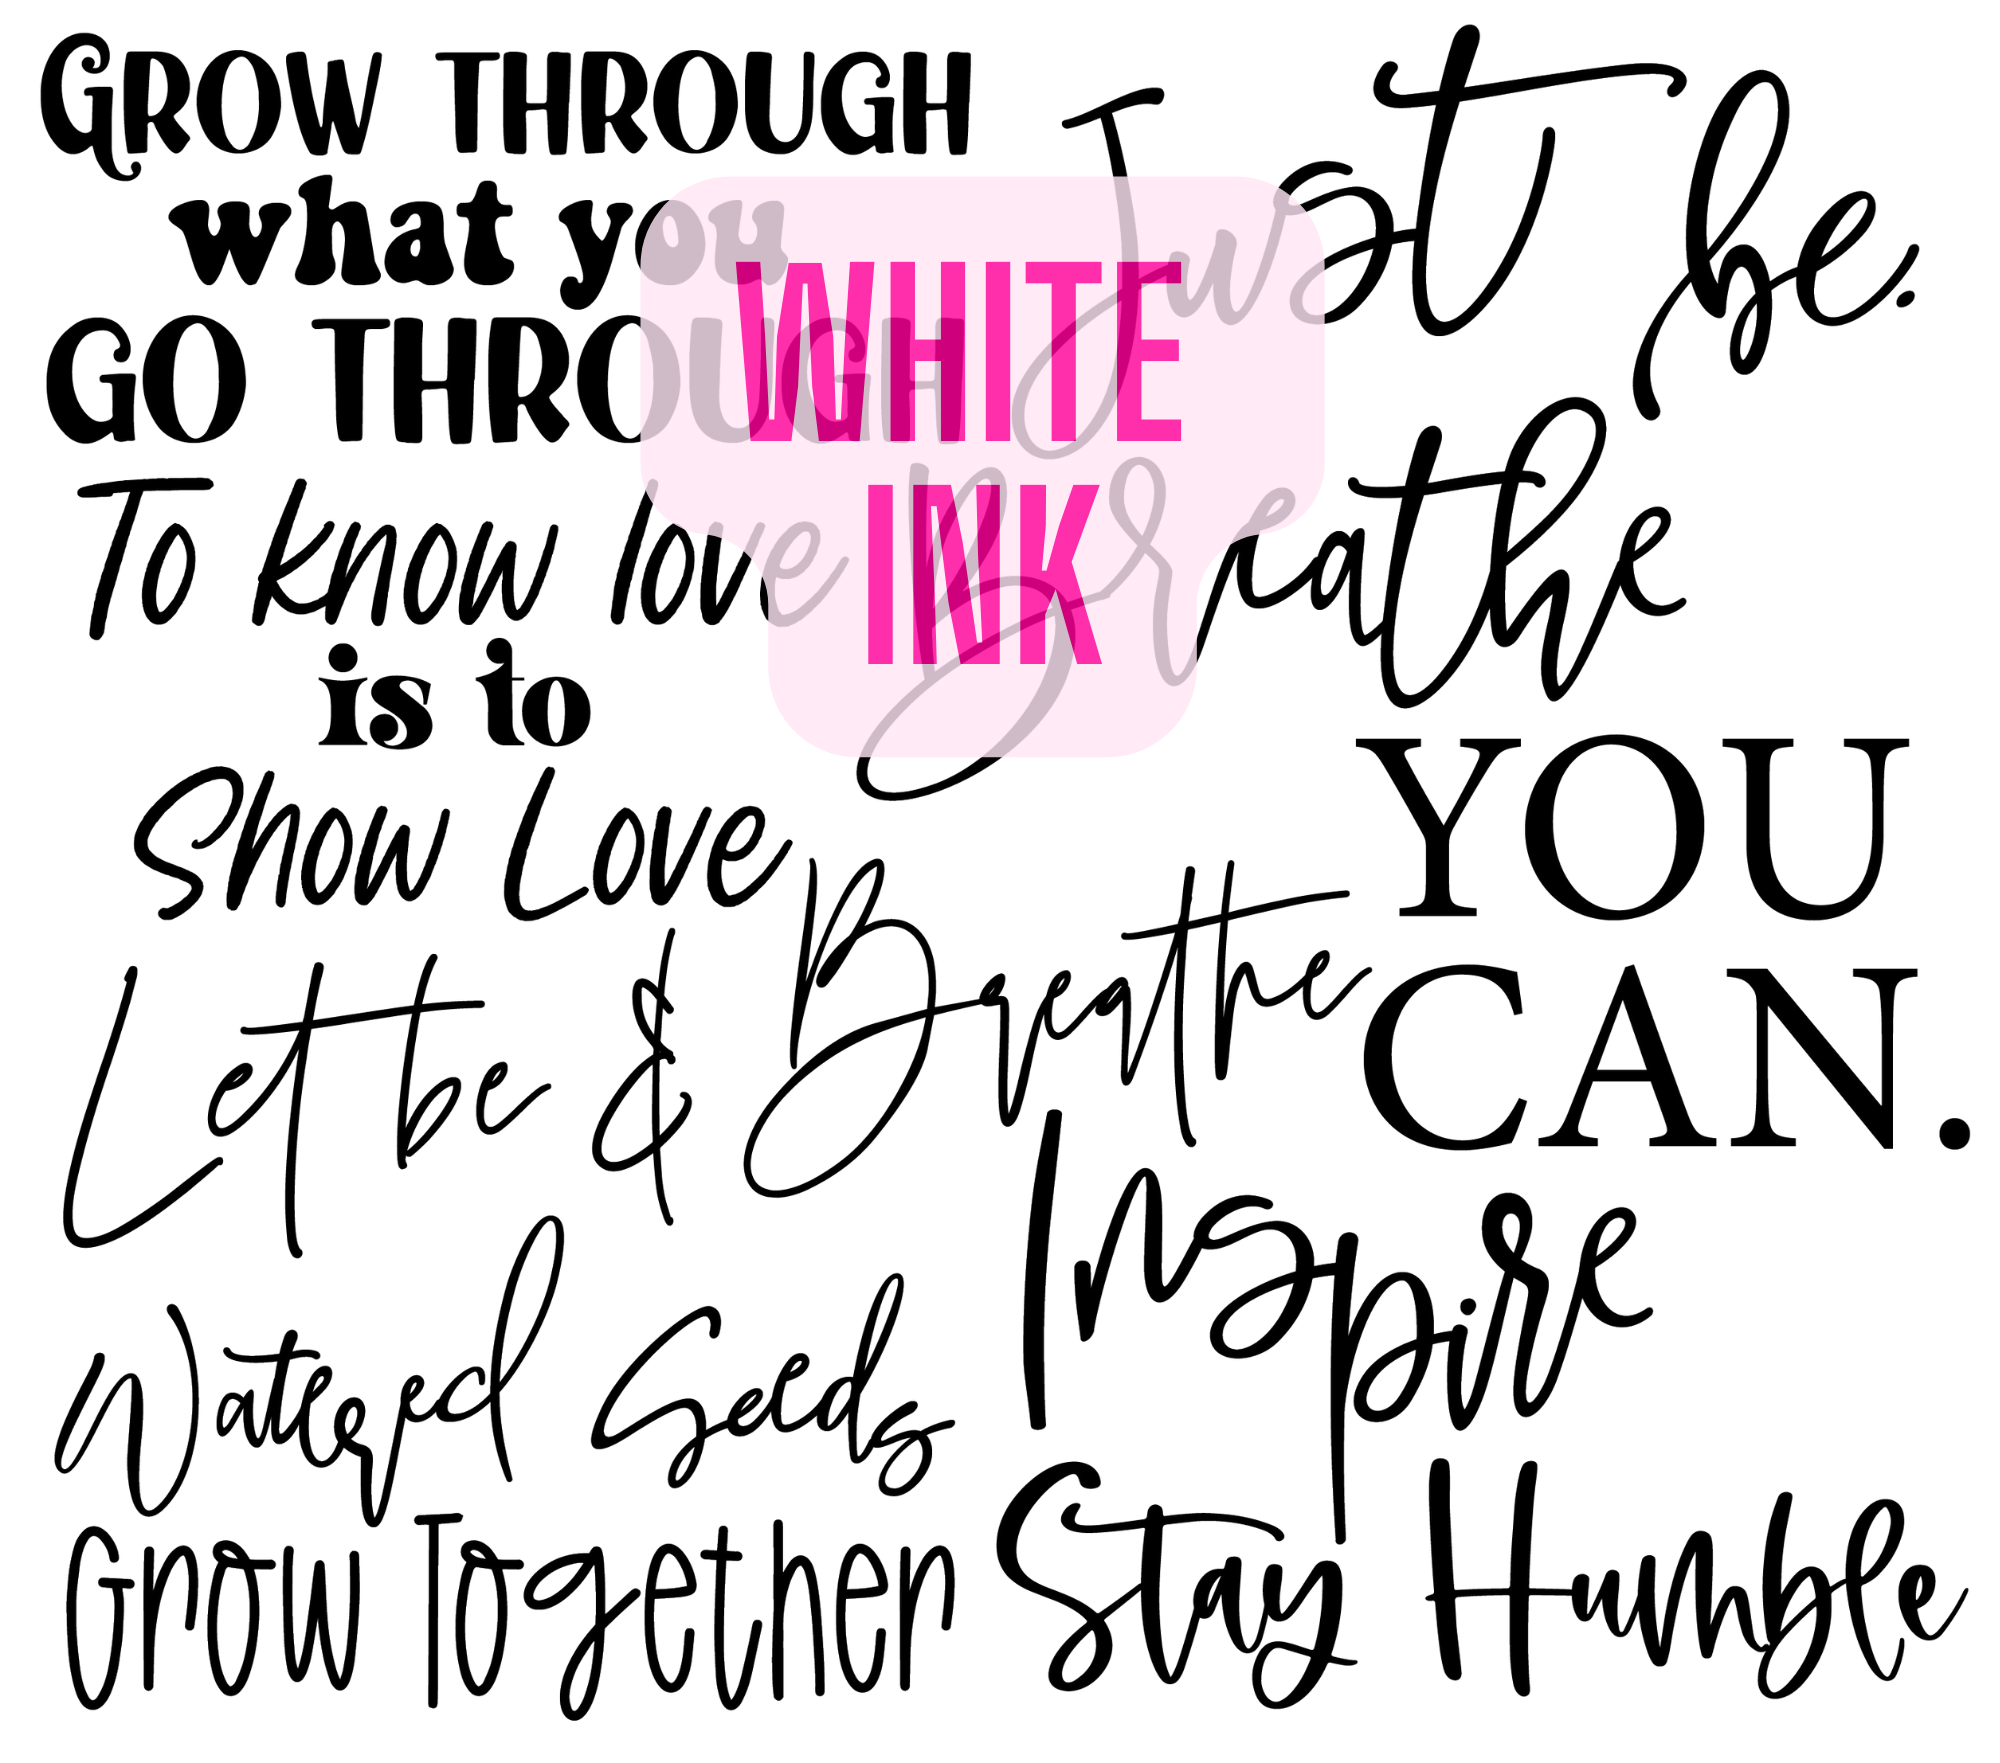 GROW THROUGH
what you
GO THROUGH
To know love
is to
Show Love
Just be.
WHITE
INK
Breathe
YOU
CAN.
Let be & Breathe
Inspire
Watered Seeds
Grow Together
Stay Humble